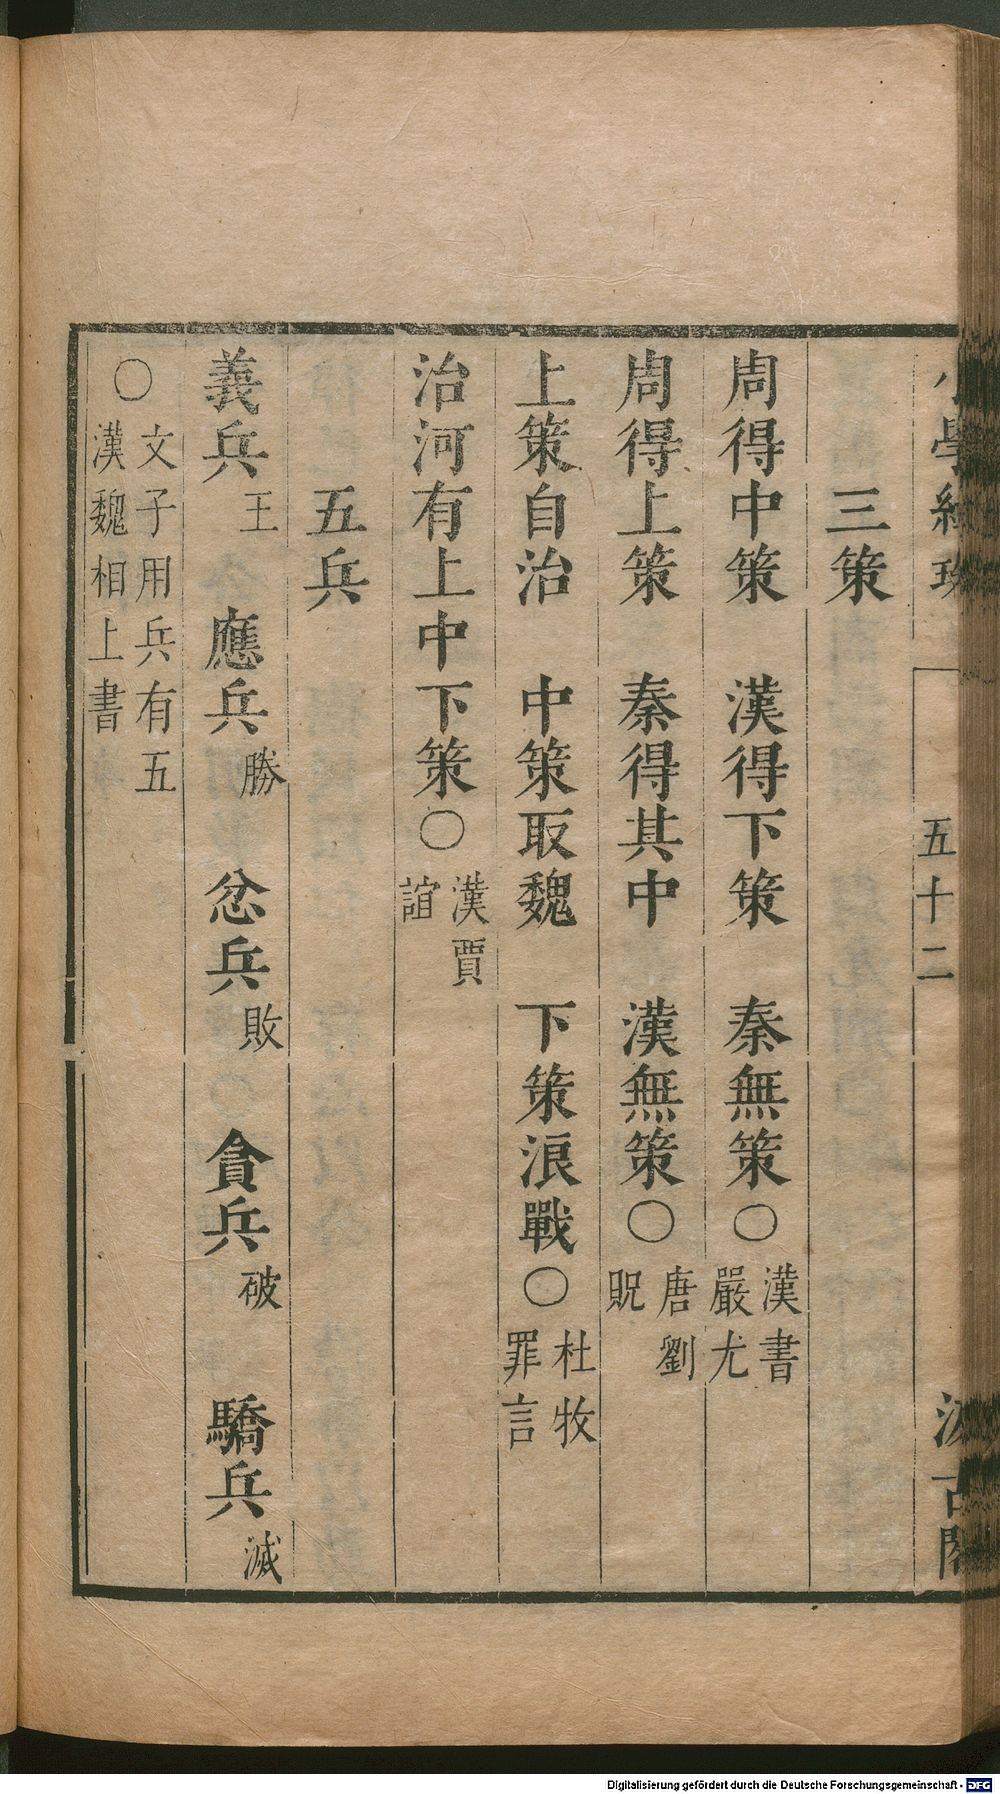 小學紺珠 五十二 汲古閣
三策
周得中策 漢得下策 秦無策○漢書嚴尤
周得上策 秦得其中 漢無策○唐劉貺
上策自治 中策取魏 下策浪戰○杜牧罪言
治河有上中下策○漢賈誼
五兵
義兵王 應兵勝 忿兵敗 貪兵破 驕兵滅
○文子用兵有五漢魏相上書
Digitalisierung gefördert durch die Deutsche Forschungsgemeinschaft - DFG